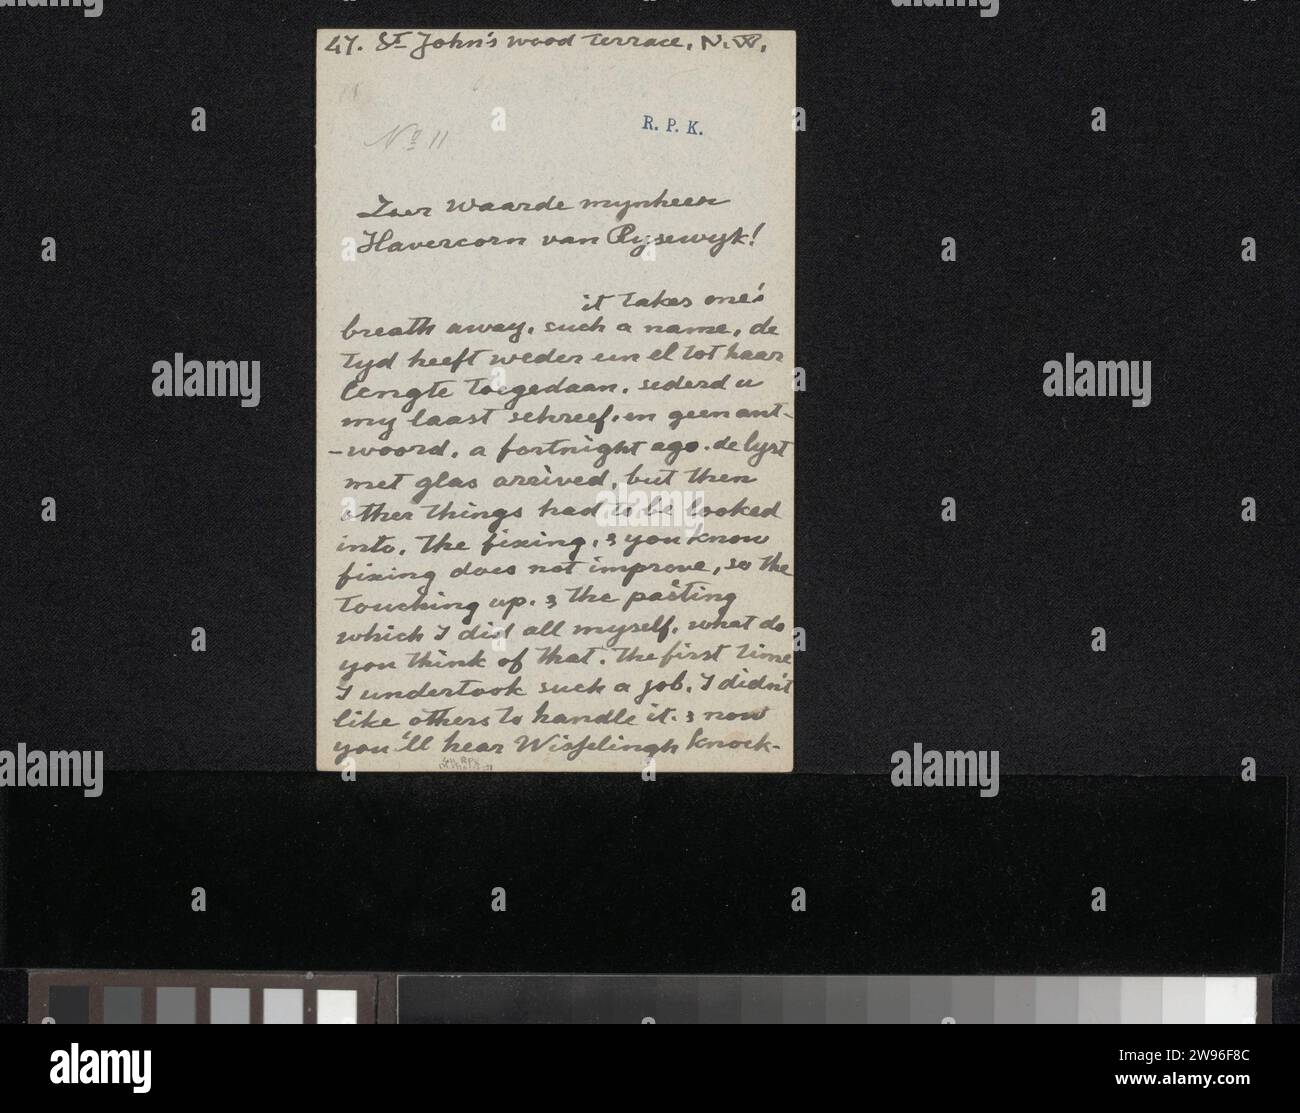 47. St John's wood Terrace, N.W.
No 11
R. P. K.
Zeer waarde mynheer
Havercorn van Rysewyk!
it takes one's
breath away, such a name, de
tyd heeft weder een el tot haar
lengte toegedaan, sederd u
my laast schreef, en geen ant-
-woord, a fortnight ago. de lyst
met glas arrived, but then
other things had to be looked
into, the fixing, & you know
fixing does not improve, so the
touching up. & the pasting
which I did all myself, what do
you think of that. the first time
I undertook such a job, I didn't
like others to handle it. & now
you'll hear Wisselingh knock-
alamy
alamy
Image ID: 2W96F8C
www.alamy.com